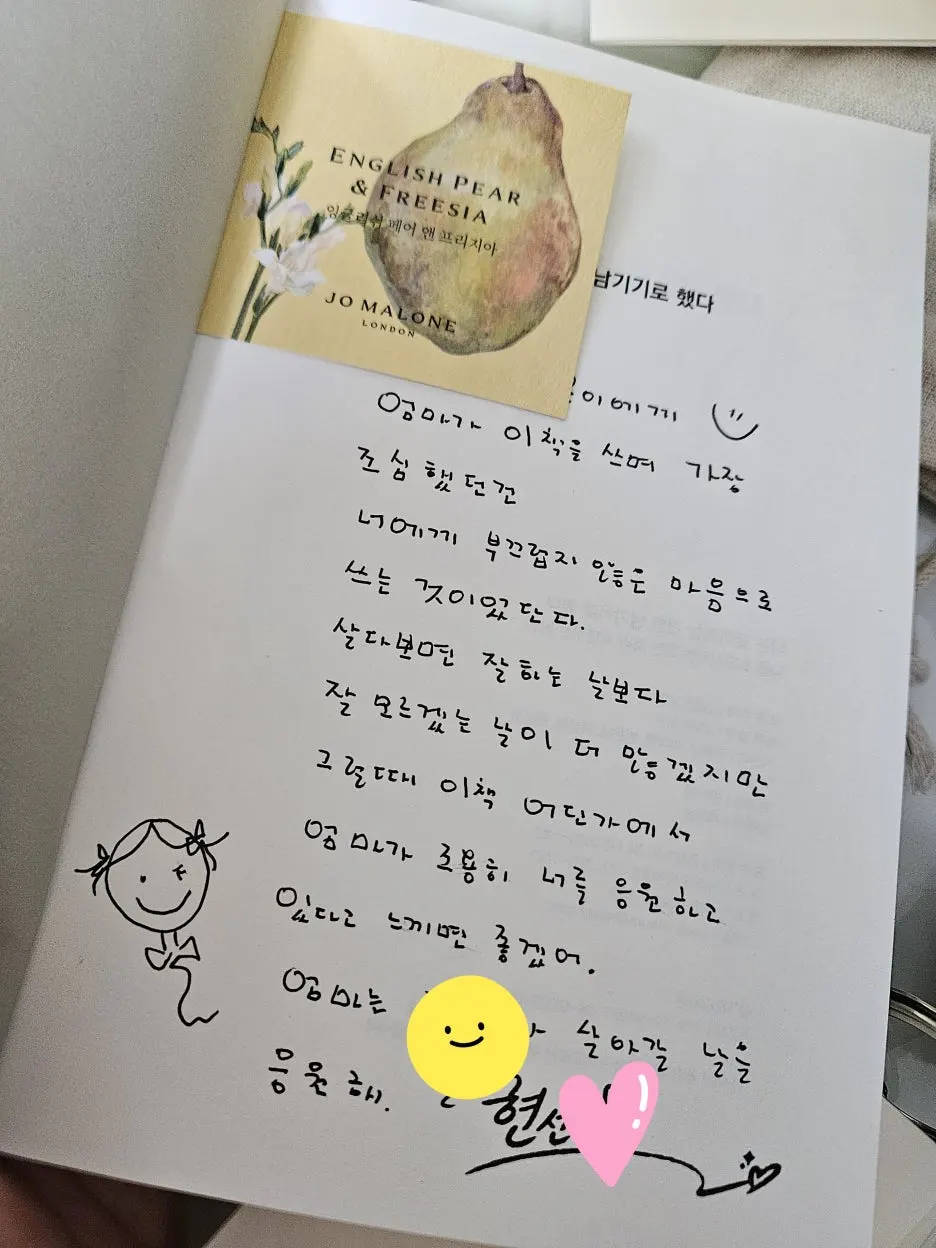 ENGLISH PEAR
& FREESIA
잉글리쉬 페어 앤 프리지아
JO MALONE
LONDON
남기기로 했다
이에게
엄마가 이 책을 쓰며 가장
조심했던건
너에게 부끄럽지 않은 마음으로
쓰는 것이었단다.
살다보면 잘하는 날보다
잘 모르겠는 날이 더 많겠지만
그럴때 이책 어딘가에서
엄마가 조용히 너를 응원하고
있다고 느끼면 좋겠어.
엄마는 살아갈 날을
응원해.
현선